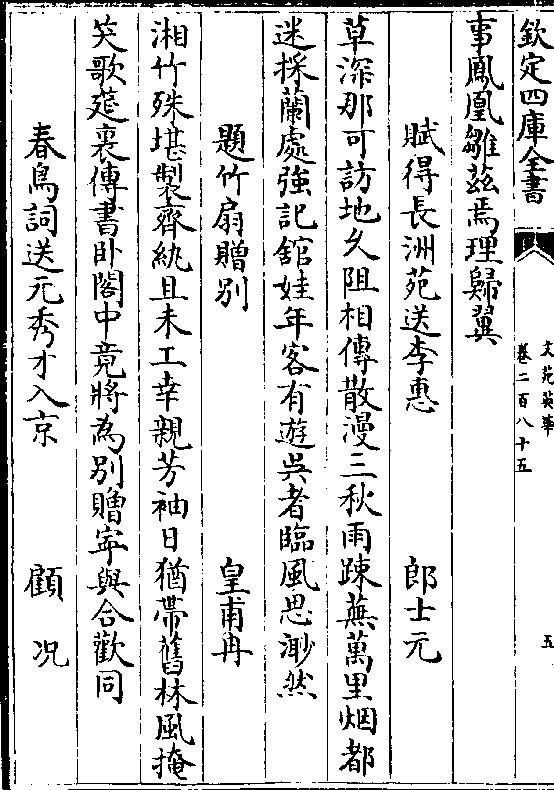 欽定四庫全書
文苑英華
卷二百八十五
五
事鳳凰雛茲焉理歸翼
賦得長洲苑送李惠 郎士元
草深那可訪地久阻相傳散漫三秋雨踈蕪萬里烟都
迷採蘭處強記舘娃年客有遊吳者臨風思渺然
題竹扇贈別 皇甫冉
湘竹殊堪製齊紈且未工幸親芳袖日猶帶舊林風掩
笑歌筵裏傳書卧閣中竟將為別贈寧與合歡同
春鳥詞送元秀才入京 顧况